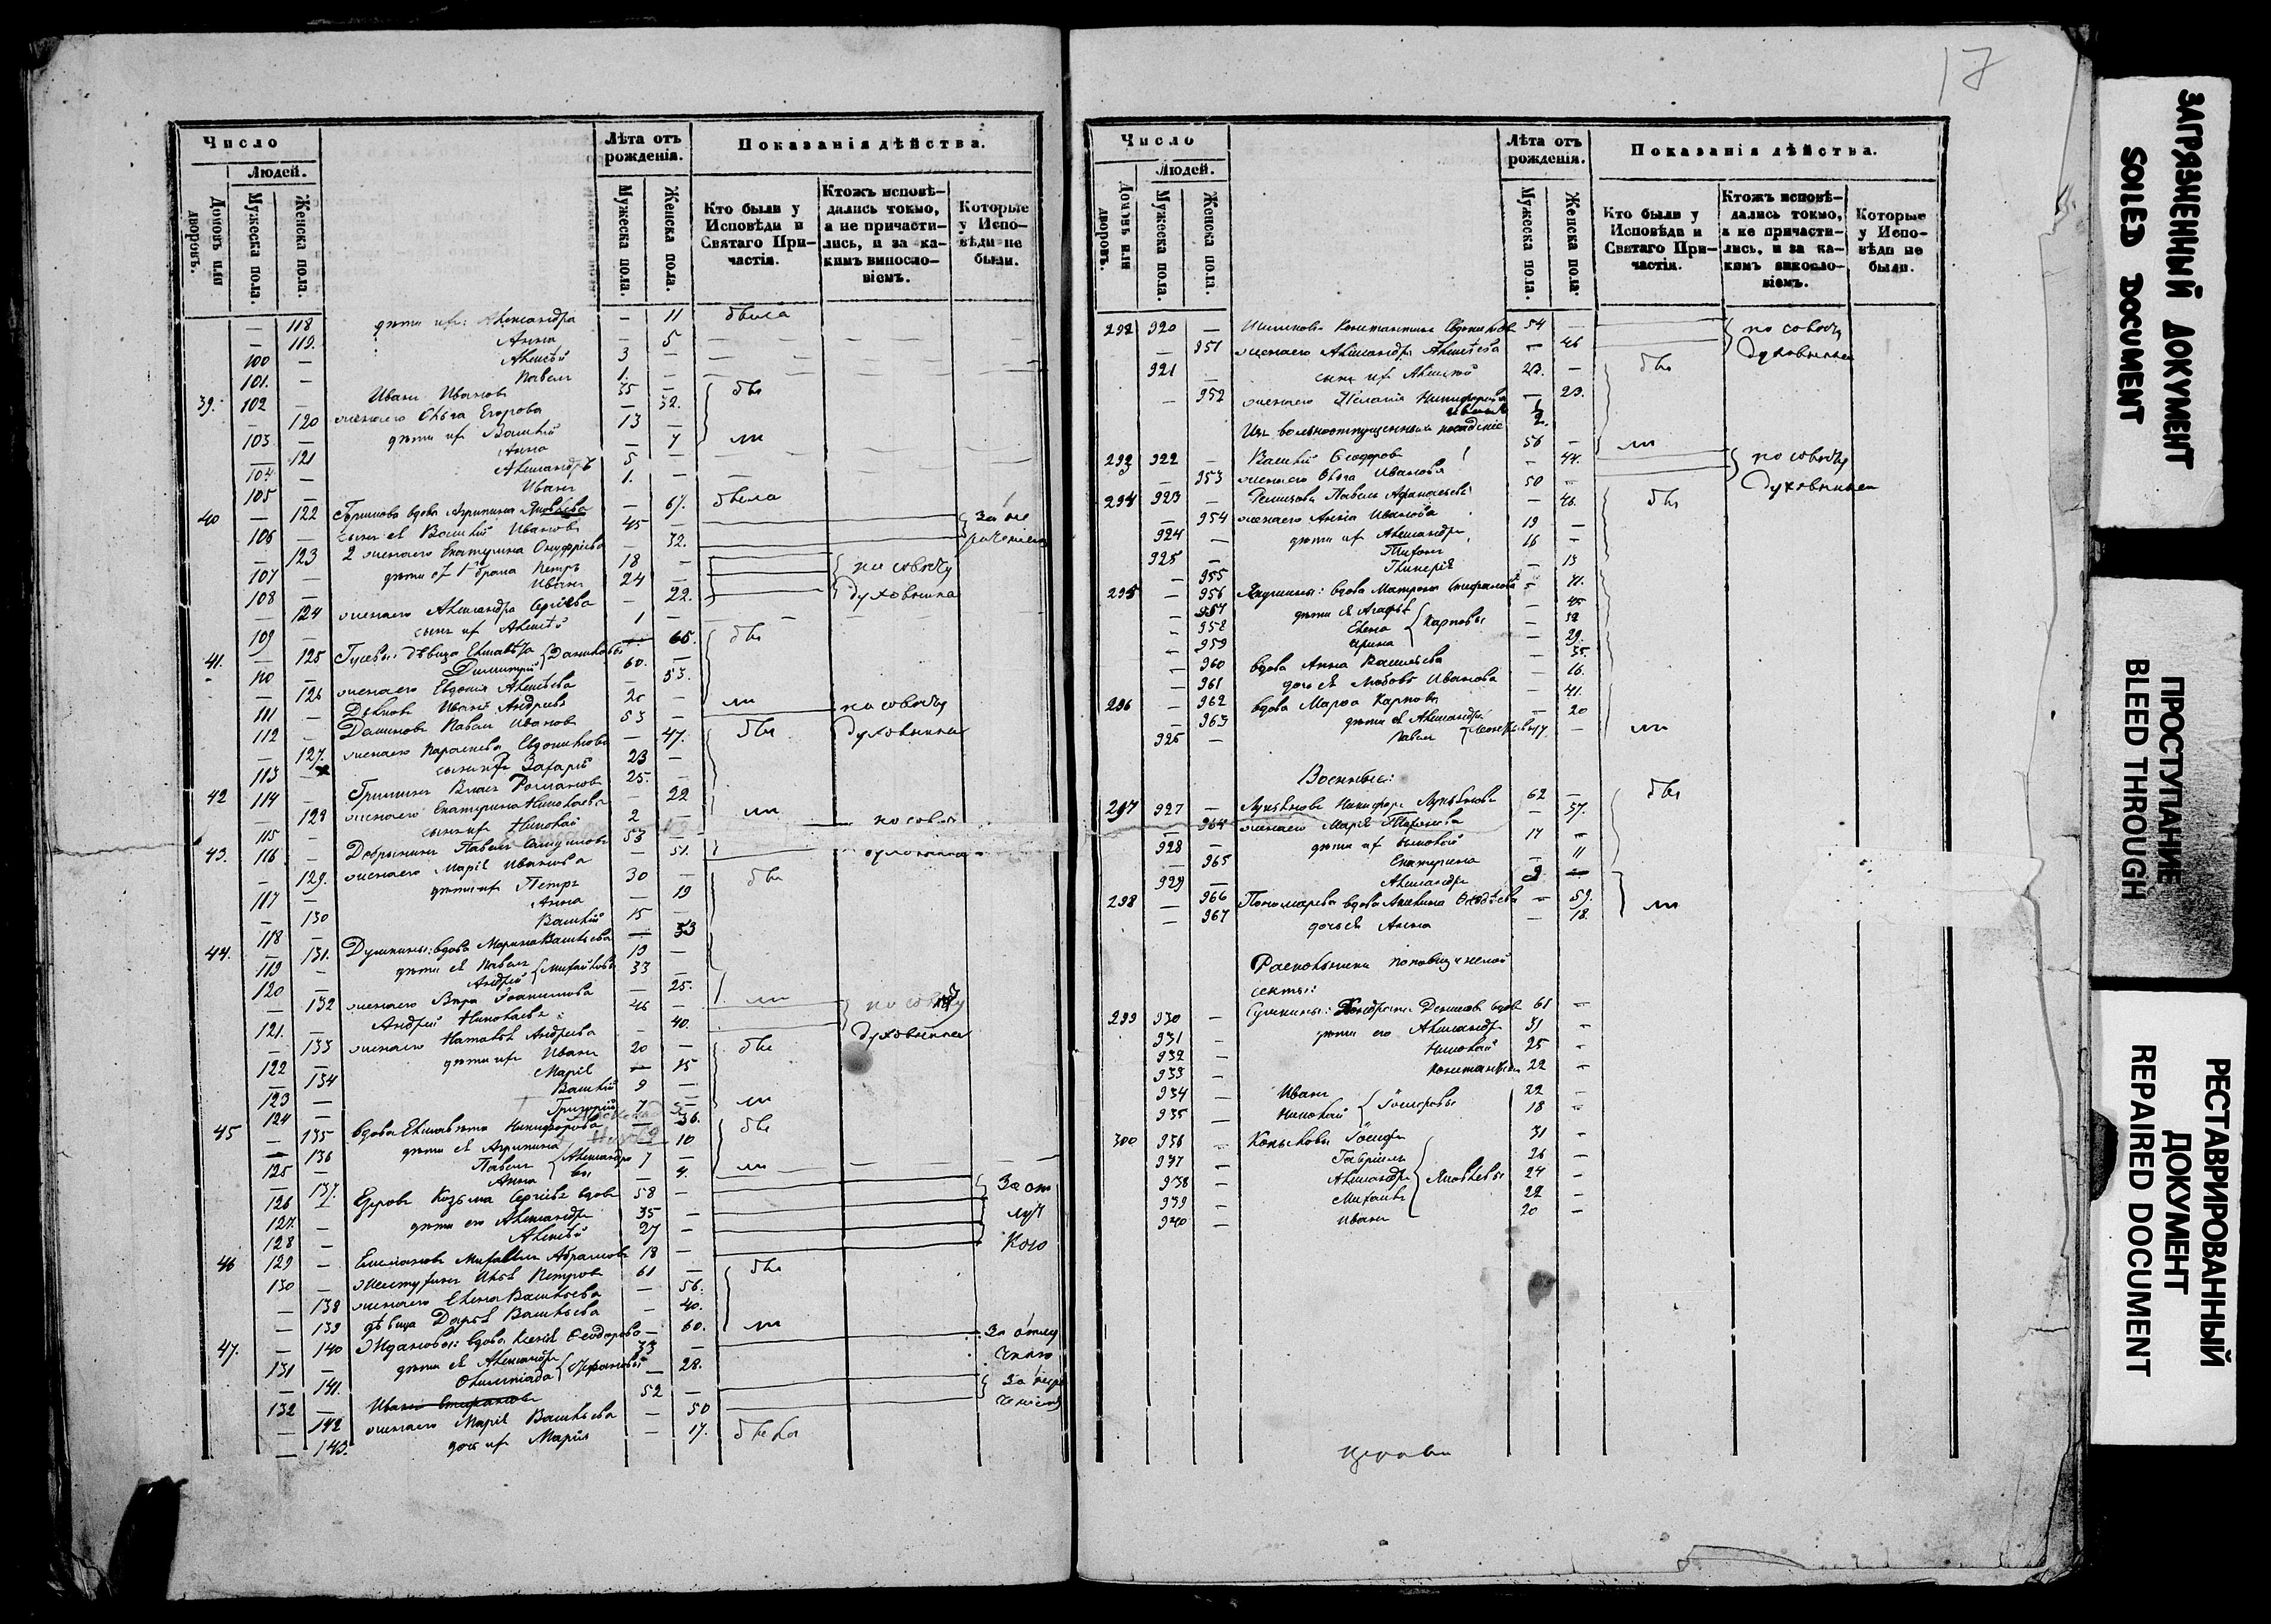 17
Число
Людей.
Домовъ или дворовъ.
Мужеска пола.
Женска пола.
Лѣта отъ рожденія.
Мужеска пола.
Женска пола.
Показанія дѣйства.
Кто были у Исповѣди и Святаго Причастія.
Ктожъ исповѣдались токмо, а не причастились, и за какимъ винословіемъ.
Которые у Исповѣди не были.
— 118 дѣти ихъ: Александра — 11 была
— 119. Анна — 5
100 — Алексѣй 3 —
101. — Павелъ 1. —
39. 102 — Иванъ Ивановъ 35 — бы
— 120 жена его Ольга Егорова — 32.
103 — дѣти ихъ Василій 13 —
— 121 Анна — 7 ли
104 — Александръ 5 —
105 — Иванъ 1. —
40 — 122 вдова Агрипина Яковлева — 67. была
106 — сынъ ея Василій Ивановъ 45 — За не
— 123 2 жена его Екатерина Онуфріева — 32.
107 — дѣти отъ 1 брака Петръ 18 — по совѣту
108 — Иванъ 24 — духовника
— 124 жена его Александра Сергіева — 22.
109 — сынъ ихъ Алексѣй 1 —
41. — 125 Гусевы: дѣвица Елисавета Даниловы — 65. бы
110 — Димитрій 60. —
— 126 жена его Евдокія Алексѣева — 53.
111 — Иванъ Андреевъ 20 — ли
112 — Павелъ Ивановъ 53 — по совѣту
— 127. жена его Параскева Евдокимова — 47. бы духовника
113 — сынъ ихъ Захарій 23 —
42 114 — Гришинъ Власъ Романовъ 25. —
— 128 жена его Екатерина Николаева — 22
115 — сынъ ихъ Николай 2 — ли
43. 116 — Добрынинъ Павелъ 53 — по совѣ
— 129. жена его Марія Иванова — 51. духовника
117 — дѣти ихъ Петръ 30 — бы
— 130 Анна — 19
118 — Василій 15 —
44. — 131. вдова Марина Васильева — 53
119 — дѣти ея Павелъ Михайловы 19 —
120 — Андрей 33 —
— 132 жена его Вѣра Іоакимова — 25. ли
121. — Андрей Николаевъ 46 — по совѣту
— 133 жена его Наталья Андреева — 40. духовника
122 — дѣти ихъ Иванъ 20 — бы
— 134 Марія — 15
123 — Василій 9 —
124 — Григорій 7 — ли
45 — 135 вдова Елисавета Никифорова — 36. бы
— 136 дѣти ея Агрипина — 10
125 — Павелъ Александровы 7 —
— 137. Анна — 4. ли
126 — Егоровъ Козьма Сергіевъ вдовъ 58 — За от
127. — дѣти его Александръ 35 — луч
128 — Алексѣй 27 — кою
46 129 — Михаилъ Абрамовъ 18 —
130 — Илья Петровъ 61 — бы
— 138 жена его Елена Васильева — 56.
— 139 дѣвица Дарья Васильева — 40.
47. — 140 Ждановы: вдова Ксенія Ѳеодорова — 60. ли За отлу
131 — дѣти ея Александръ Стефановы 33 — чкою
— 141. Олимпіада — 28.
132 — Иванъ Стефановъ 52 — За нера
— 142 жена его Марія Васильева — 50 ченіемъ
— 143. дочь ихъ Марія — 17. была
Число
Людей.
Домовъ или дворовъ.
Мужеска пола.
Женска пола.
Лѣта отъ рожденія.
Мужеска пола.
Женска пола.
Показанія дѣйства.
Кто были у Исповѣди и Святаго Причастія.
Ктожъ исповѣдались токмо, а не причастились, и за какимъ винословіемъ.
Которые у Исповѣди не были.
292 920 — Константинъ Евдокимовъ 54 — по совѣту
— 951 жена его Александра Алексѣева — 46 духовника
921 — сынъ ихъ Алексѣй 23. — бы
— 952 жена его Пелагія Никифорова — 23.
Изъ вольноотпущенныхъ
293 922 — Василій Ѳеодоровъ 56 — ли
— 953 жена его Ольга Иванова — 44. по совѣту
294 923 — Павелъ Афанасьевъ 50 — духовника
— 954 жена его Анна Иванова — 46. бы
924 — дѣти ихъ Александръ 19 —
925 — Тихонъ 16 —
— 955 Гликерія — 13
295 — 956 вдова Матрона Стефанова — 71.
— 957 дѣти ея Агафья — 45
— 958 Елена Карповы — 32
— 959 Ирина — 29.
— 960 вдова Анна Васильева — 35.
— 961 дочь ея Любовь Иванова — 16.
296 — 962 вдова Марѳа Карпова — 41.
— 963 дѣти ея Александра — 20
926 — Павелъ 17 — ли
Военные:
297 927 — Лукьяновъ Никифоръ Лукьяновъ 62 — бы
— 964 жена его Марія — 37.
928 — дѣти ихъ Николай 17 —
— 965 Екатерина — 11
929 — Александръ 9 —
298 — 966 Пономарева вдова Акилина — 59. ли
— 967 дочь ея Анна — 18.
Раскольники поповщинской
секты:
299 930 — Сушкины: Кондратій Денисовъ вдовъ 61 —
931 — дѣти его Александръ 31 —
932 — Николай 25 —
933 — Константинъ 22 —
934 — Иванъ 22 —
935 — Николай 18 —
300 936 — Іосифъ 31 —
937 — Гавріилъ 26 —
938 — Александръ Яковлевы 24 —
939 — Михаилъ 22 —
940 — Иванъ 20 —
Церкви
ЗАГРЯЗНЕННЫЙ ДОКУМЕНТ
SOILED DOCUMENT
ПРОСТУПАНИЕ
BLEED THROUGH
РЕСТАВРИРОВАННЫЙ ДОКУМЕНТ
REPAIRED DOCUMENT